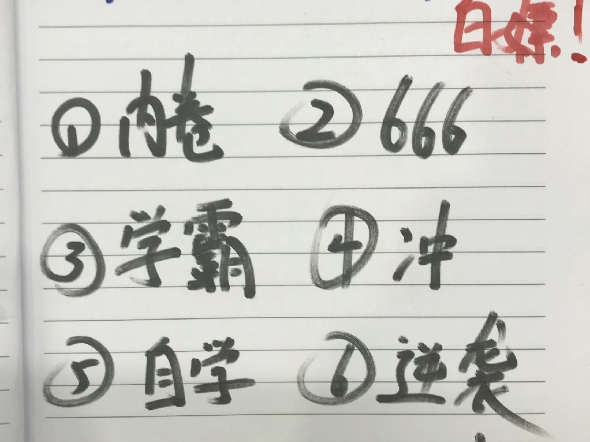 ①内卷 ②666
③学霸 ④冲
⑤自学 ⑥逆袭